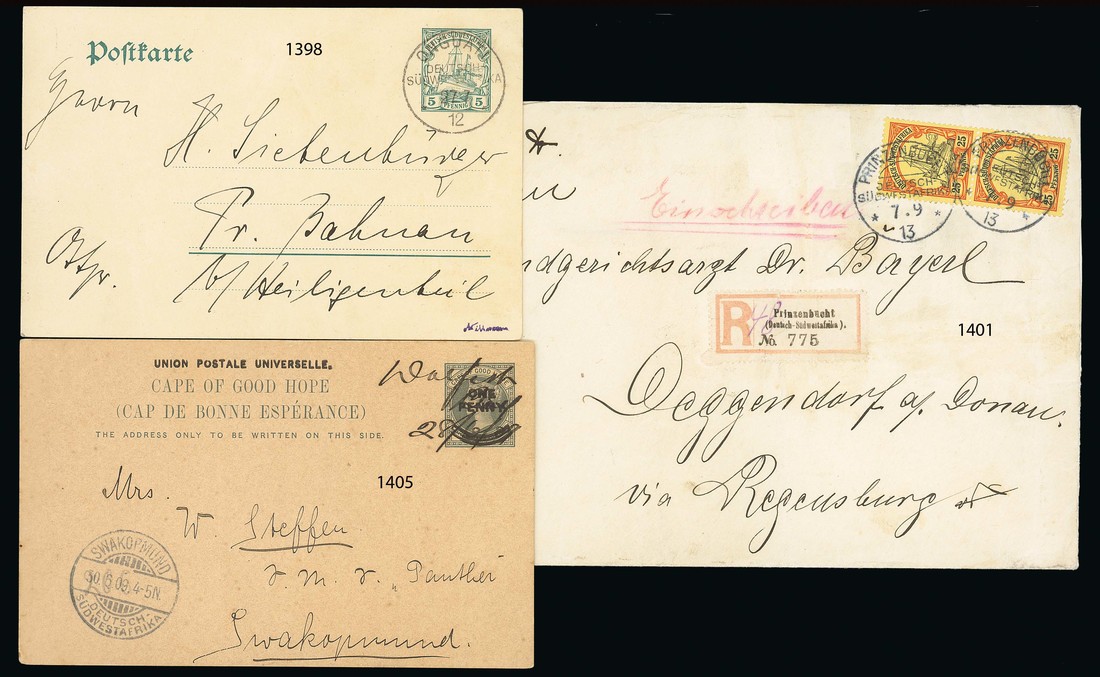 Postkarte
1398
Herrn
H. Siebenbürger
Pr. Bahnau
Ostpr.
b/Heiligenbeil
DEUTSCH-
SÜDWESTAFRIKA
27.7
12
5 PFENNIG 5
Einschreiben
PRINZENBUCHT
DEUTSCH-
SÜDWESTAFRIKA
* 7.9 *
13
25
25
Dr. Bayerl
R
Prinzenbucht
(Deutsch-Südwestafrika).
No. 775
1401
Deggendorf a/Donau.
via Regensburg
UNION POSTALE UNIVERSELLE.
CAPE OF GOOD HOPE
(CAP DE BONNE ESPÉRANCE)
THE ADDRESS ONLY TO BE WRITTEN ON THIS SIDE.
ONE
PENNY
1405
Mrs.
W. Steffen
"Panther
Swakopmund.
SWAKOPMUND
30.6.09.4-5N.
DEUTSCH-
SÜDWESTAFRIKA